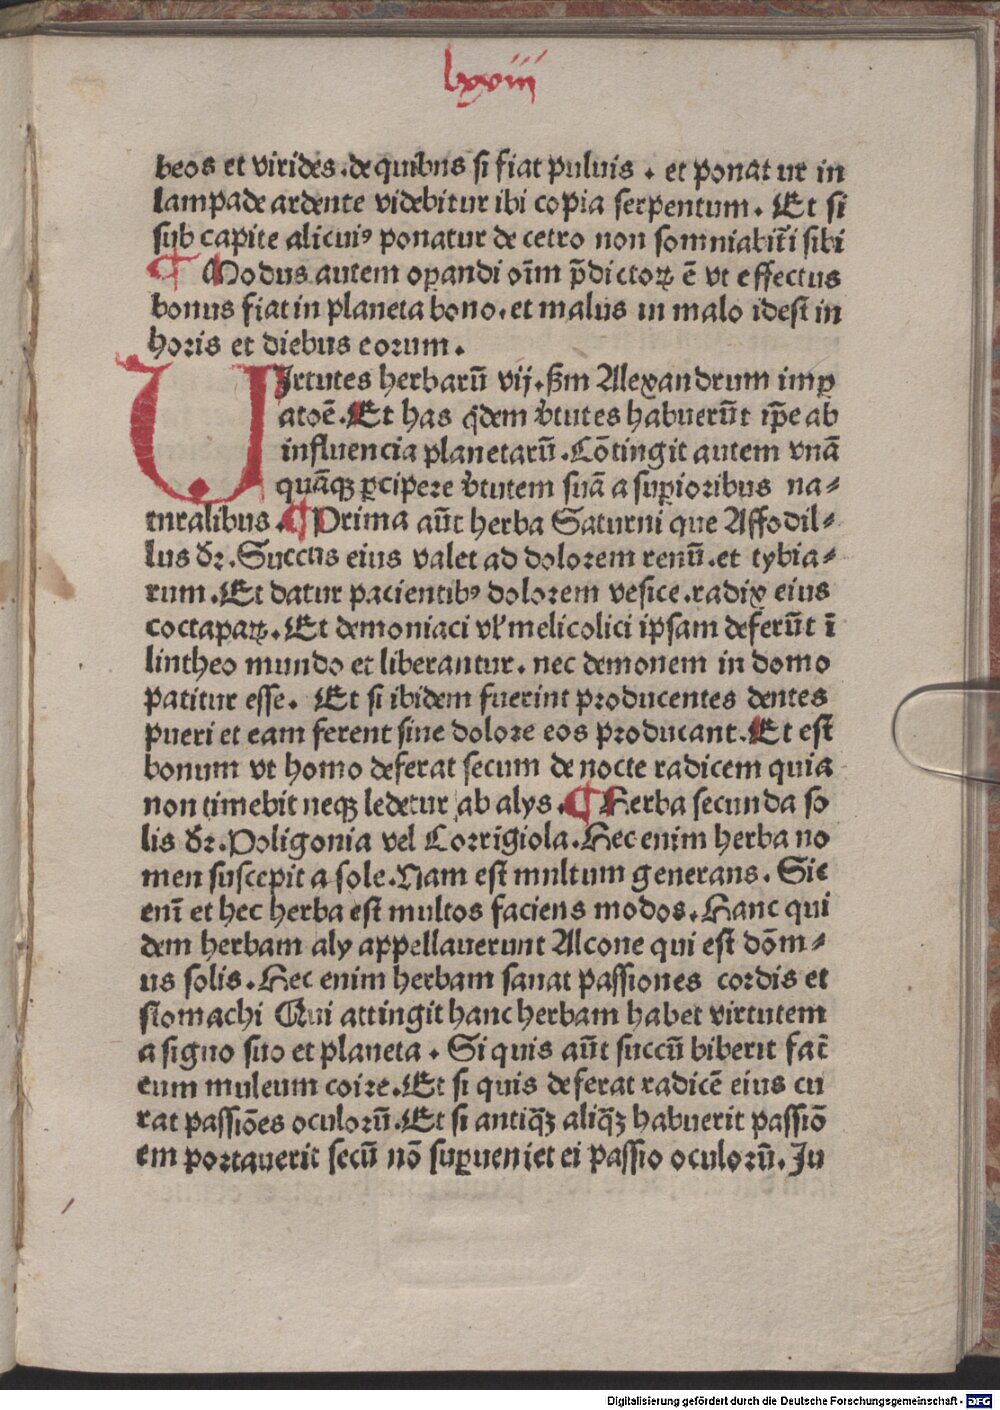 lxxviii
beos et virides .de quibus si fiat puluis . et ponatur in
lampade ardente videbitur ibi copia serpentum. Et si
sub capite alicuiꝰ ponatur de cetro non somniabit̄i sibi
¶ Modus autem oꝑandi oīm p̄dictoꝝ ē vt effectus
bonus fiat in planeta bono. et malus in malo idest in
horis et diebus eorum.
VIrtutes herbarū vij. ẜm Alexandrum imꝑ
atoē. Et has q̄dem v̓tutes habuerūt ip̄e ab
influencia planetarū. Cōtingit autem vnā
quāqꝫ ꝑcipere v̓tutem suā a suꝑioribus na⸗
turalibus. ¶ Prima aūt herba Saturni que Affodil⸗
lus dr̄. Succus eius valet ad dolorem renū. et tybia⸗
rum. Et datur pacientibꝰ dolorem vesice. radix eius
coctaparꝝ. Et demoniaci vl̓ melicolici ipsam deferūt ī
lintheo mundo et liberantur. nec demonem in domo
patitur esse. Et si ibidem fuerint producentes dentes
pueri et eam ferent sine dolore eos producant. Et est
bonum vt homo deferat secum de nocte radicem quia
non timebit neqꝫ ledetur ab alys. ¶ Herba secunda so
lis dr̄. Poligonia vel Corrigiola. Hec enim herba no
men suscepit a sole. Nam est multum generans. Sic
enī et hec herba est multos faciens modos. Hanc qui
dem herbam aly appellauerunt Alcone qui est dōm⸗
us solis. Hec enim herbam sanat passiones cordis et
stomachi Qui attingit hanc herbam habet virtutem
a signo suo et planeta. Si quis aūt succū biberit fac̄
eum muleum coire. Et si quis deferat radicē eius cu
rat passiōes oculorū. Et si antiq̄ꝫ aliq̄ꝫ habuerit passiō
em portauerit secū nō suꝑueniet ei passio oculorū. Ju
Digitalisierung gefördert durch die Deutsche Forschungsgemeinschaft - DFG